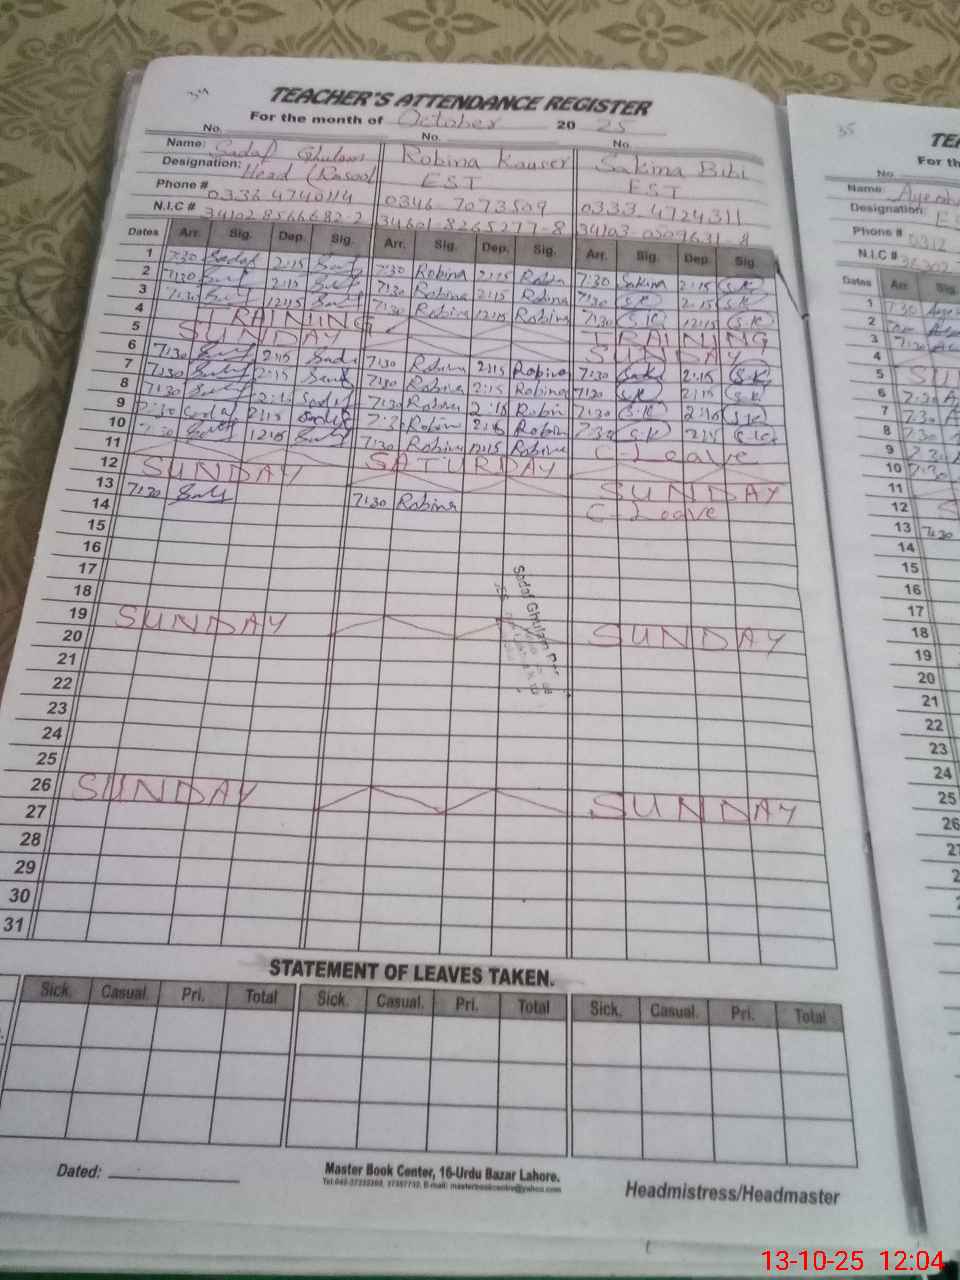 TEACHER'S ATTENDANCE REGISTER
For the month of October 20 25
No. No. No.
Name: Sadaf Ghulam Robina Kauser Sakina Bibi
Designation: Head (Rasool EST EST
Phone # 0336 4740114 0346 7073509 0333 4724311
N.I.C # 34102 8566682-2 34601-8265277-8 34103-0509631-8
Dates Arr. Sig. Dep. Sig. Arr. Sig. Dep. Sig. Arr. Sig. Dep. Sig.
1 7:30 Sadaf 2:15 7:30 Robina 2:15 Robin 7:30 Sakina 2:15 S.K
2 7:30 2:15 7:30 Robina 2:15 Robina 7:30 S.K 2:15 S.K
3 7:30 12:15 7:30 Robina 12:15 Robina 7:30 S.K 12:15 S.K
4 TRAINING TRAINING
5 SUNDAY SUNDAY
6 7:30 2:15 7:30 Robina 2:15 Robina 7:30 2:15 S.K
7 7:30 2:15 7:30 Robina 2:15 Robina 7:30 S.K 2:15 S.K
8 7:30 7:30 Robina 2:15 Robin 7:30 S.K 2:15 S.K
9 7:30 Sadaf 2:15 7:30 Robin 2:15 Robin 7:30 S.K 2:15
10 7:30 12:15 7:30 Robina 12:15 Robina C-Leave
11 SATURDAY
12 SUNDAY SUNDAY
13 7:30 7:30 Robina C-Leave
14
15
16
17
18
19 SUNDAY SUNDAY
20
21
22
23
24
25
26 SUNDAY SUNDAY
27
28
29
30
31
Sadaf Ghulam
STATEMENT OF LEAVES TAKEN.
Sick. Casual. Pri. Total Sick. Casual. Pri. Total Sick. Casual. Pri. Total
Dated:
Master Book Center, 16-Urdu Bazar Lahore.
Headmistress/Headmaster
35
Name:
Designation:
Phone # 0312
N.I.C #
Dates Arr.
1 7:30
2
3 7:30
4
5
6 7:30
7 7:30
8 7:30
9 7:30
10 7:30
11
12
13 7:30
14
15
16
17
18
19
20
21
22
23
24
25
26
13-10-25 12:04